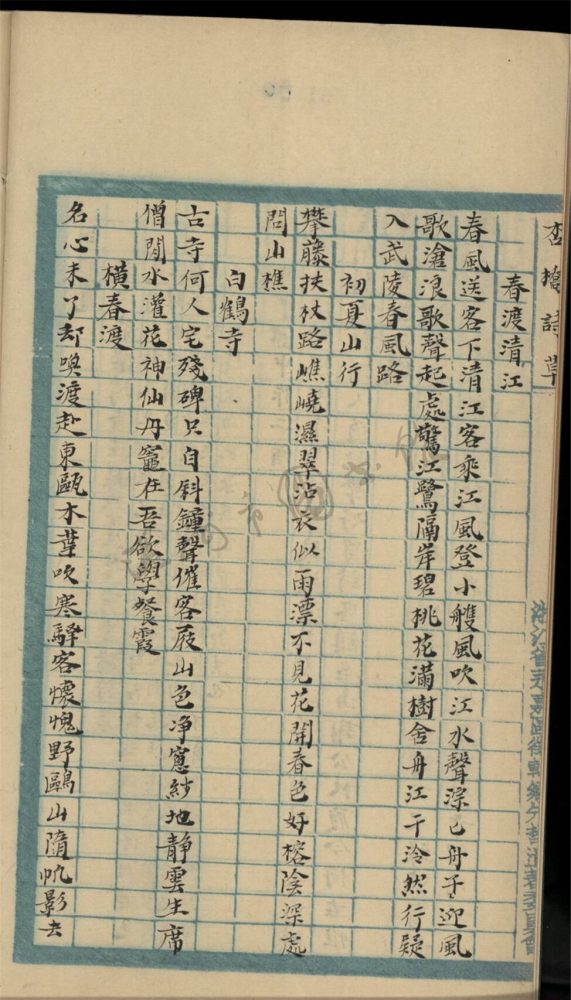 杏橋詩草
春渡清江
春風送客下清江客乘江風登小艭風吹江水聲淙〻舟子迎風
歌滄浪歌聲起處驚江鷺隔岸碧桃花滿樹舍舟江干泠然行疑
入武陵春風路
初夏山行
攀藤扶杖路嶕嶢濕翠沾衣似雨漂不見花開春色好榕陰深處
問山樵
白鶴寺
古寺何人宅殘碑只自斜鐘聲催客屐山色净窻紗地靜雲生席
僧閒水灌花神仙丹竈在吾欲學餐霞
橫春渡
名心未了却喚渡赴東甌木葉吹寒驛客懷愧野鷗山隨帆影去